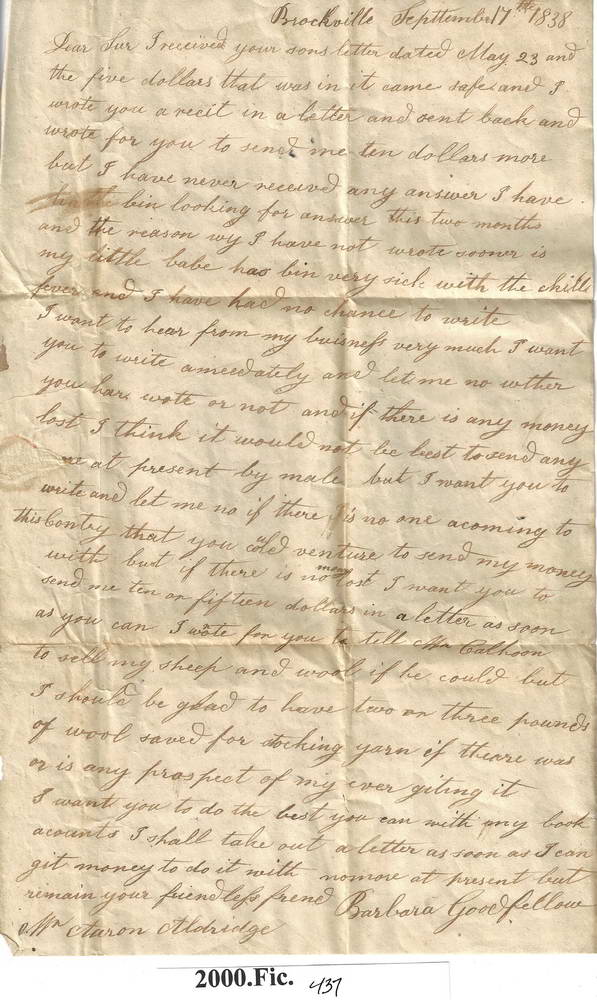 Brockville Septtember 17th 1838
Dear Sur I received your sons letter dated May 23 and
the five dollars that was in it came safe and I
wrote you a recit in a letter and sent back and
wrote for you to send me ten dollars more
but I have never received any answer I have
bin looking for answer this two months
and the reason wy I have not wrote sooner is
my little babe has bin very sick with the chill
fever and I have had no chance to write
I want to hear from my buisness very much I want
you to write ameedately and let me no wther
you hav wote or not and if there is any money
lost I think it would not be best to send any
me at present by male but I want you to
write and let me no if there is no one acoming to
this Contry that you cold venture to send my money
with but if there is no money lost I want you to
send me ten or fifteen dollars in a letter as soon
as you can I wote for you to tell Mr Calhoon
to sell my sheep and wool if he could but
I should be glad to have two or three pounds
of wool saved for stocking yarn if theare was
or is any prospect of my ever giting it
I want you to do the best you can with my book
acounts I shall take out a letter as soon as I can
git money to do it with nomore at present but
remain your friendless frend Barbara Goodfellow
Mr Aaron Aldridge
2000.Fic. 437